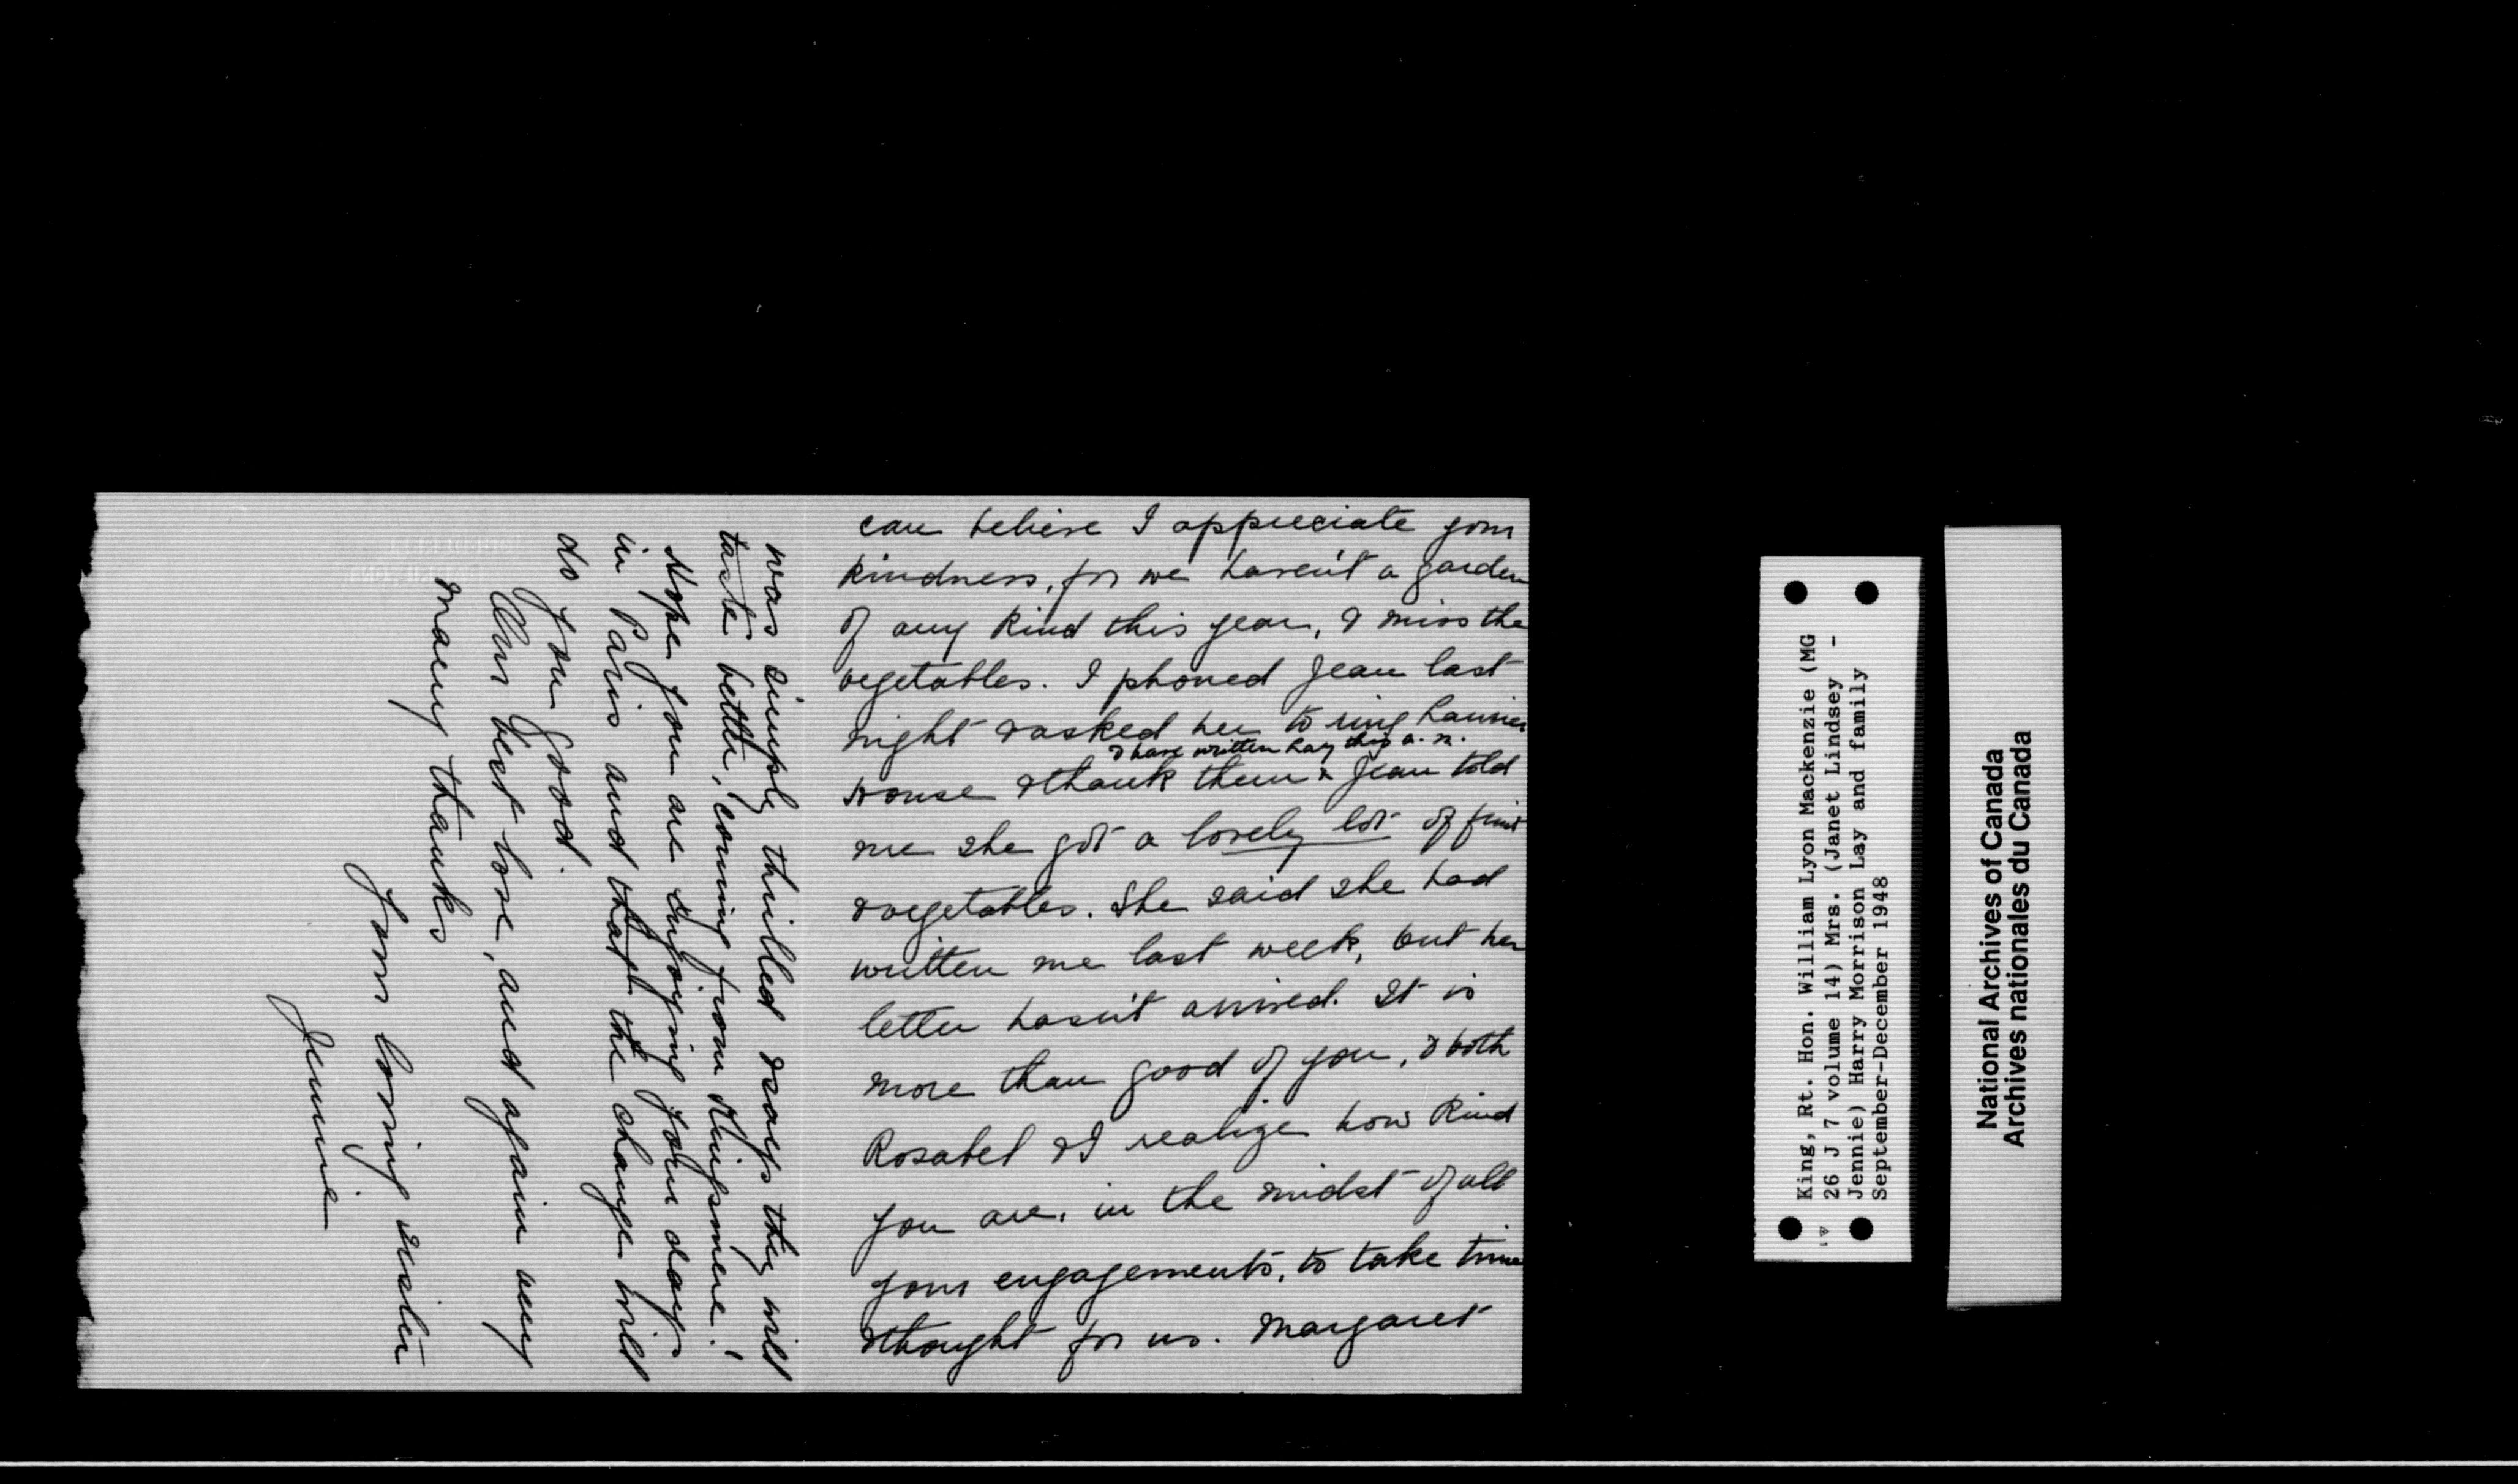 can believe I appreciate your
kindness, for we haven't a garden
of any kind this year, & miss the
vegetables. I phoned Jean last
night & asked her to ring Laurier
I have written Lay this a.m.
House & thank them & Jean told
me she got a lovely lot of fruit
& vegetables. She said she had
written me last week, but her
letter hasn't arrived. It is
more than good of you, & both
Rosabel & I realize how kind
you are, in the midst of all
your engagements, to take time
& thought for us. Margaret
was simply thrilled & says they will
taste better, coming from Kingsmere!
Hope you are enjoying your days
in Paris and that the change will
do you good.
Our best love, and again very
many thanks
Your loving sister
Jennie
King, Rt. Hon. William Lyon Mackenzie (MG
26 J 7 volume 14) Mrs. (Janet Lindsey -
Jennie) Harry Morrison Lay and family
September-December 1948
National Archives of Canada
Archives nationales du Canada